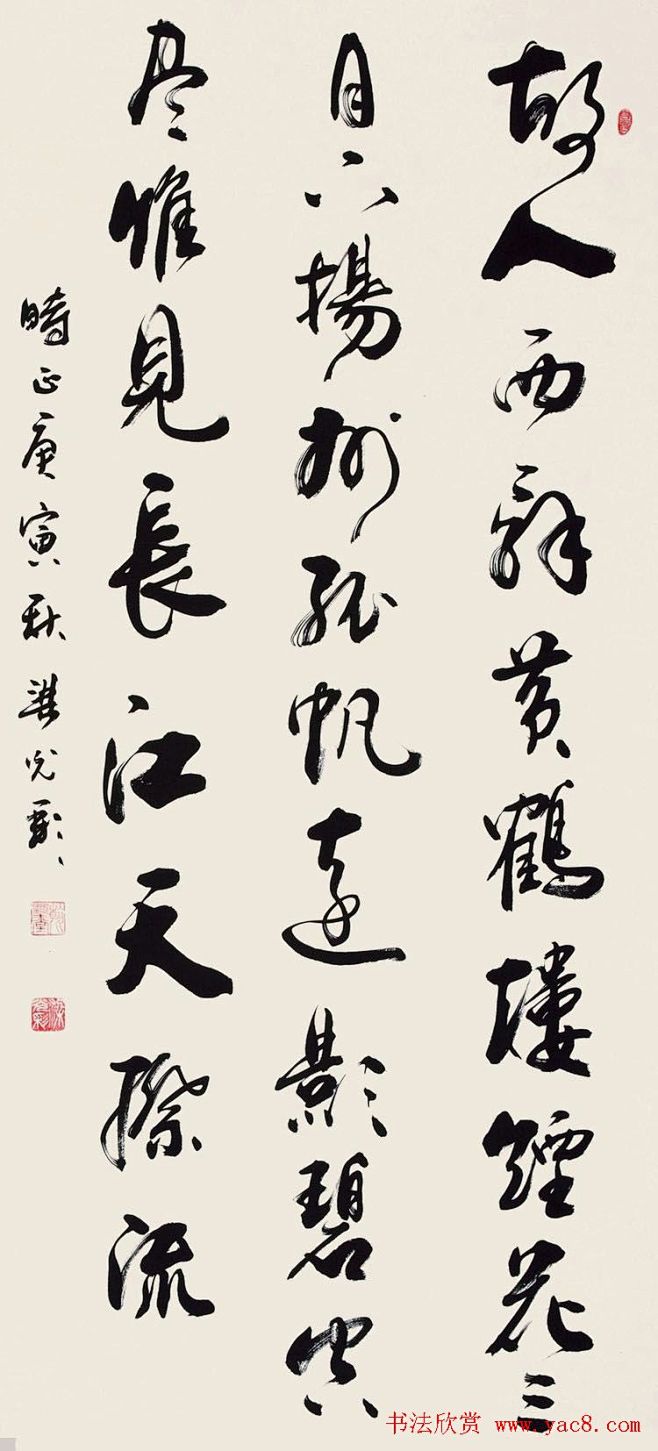 故人西辞黄鶴樓煙花三
月下揚州孤帆遠影碧空
尽惟見長江天際流
時正庚寅秋梁光
书法欣赏 www.yac8.com